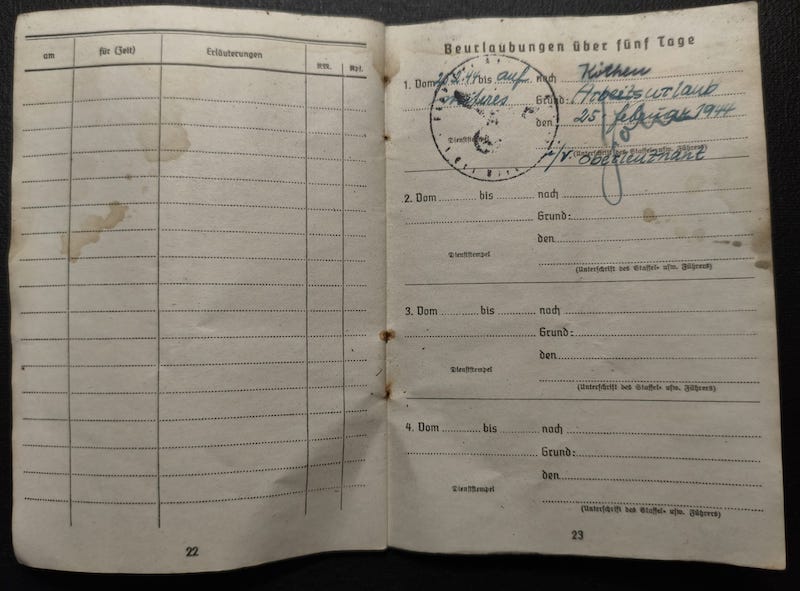 am für (Zeit) Erläuterungen RM. Rpf.
22
Beurlaubungen über fünf Tage
1. Vom 25.2.44 bis auf nach Köthen
weiteres Grund: Arbeitsurlaub
den 25. februar 1944
Dienststempel
(Unterschrift des Staffel- usw. Führers)
Oberleutnant
2. Vom bis nach
Grund:
den
Dienststempel
(Unterschrift des Staffel- usw. Führers)
3. Vom bis nach
Grund:
den
Dienststempel
(Unterschrift des Staffel- usw. Führers)
4. Vom bis nach
Grund:
den
Dienststempel
(Unterschrift des Staffel- usw. Führers)
23